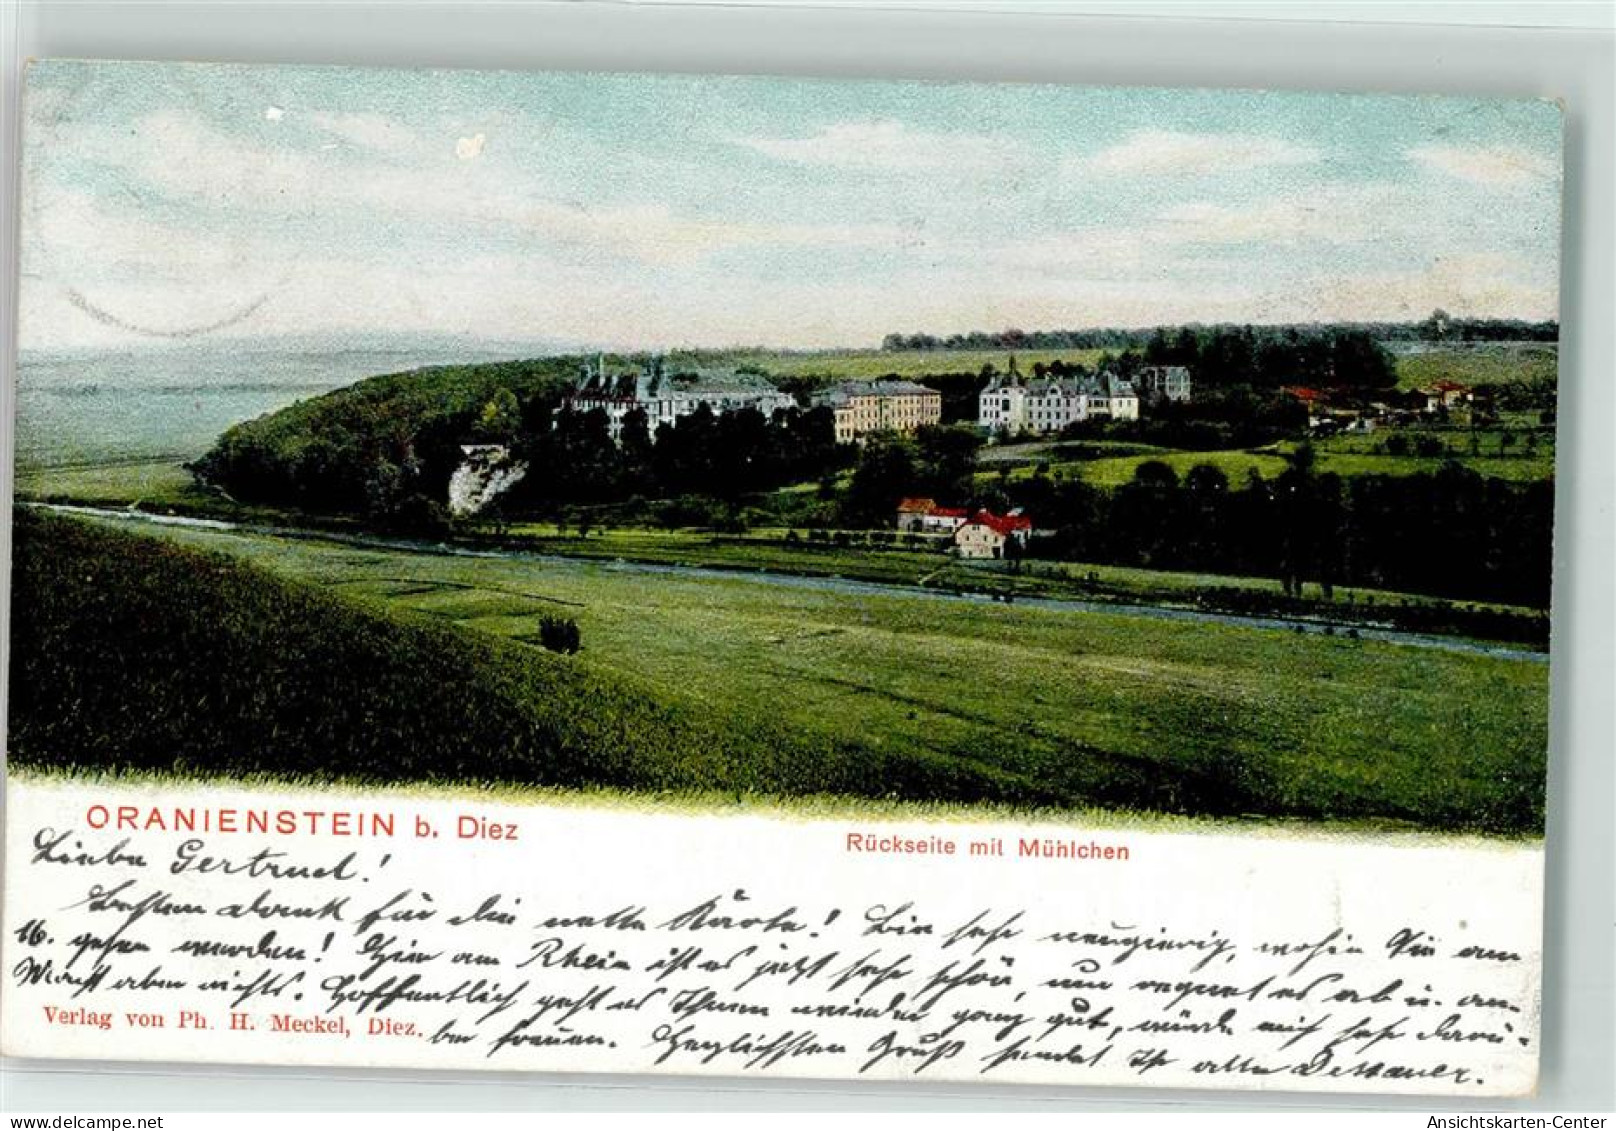 ORANIENSTEIN b. Diez
Rückseite mit Mühlchen
Liebe Gertrud!
Besten Dank für die nette Karte! Bin sehr neugierig, wohin Sie am
16. gehen werden! Hier am Rhein ist es jetzt sehr schön, nur regnet es ab u. an.
Macht aber nichts. Hoffentlich geht es Ihnen wieder ganz gut, würde mich sehr darü-
Verlag von Ph. H. Meckel, Diez.
ber freuen. Herzlichsten Gruß sendet Ihr
Ansichtskarten-Center